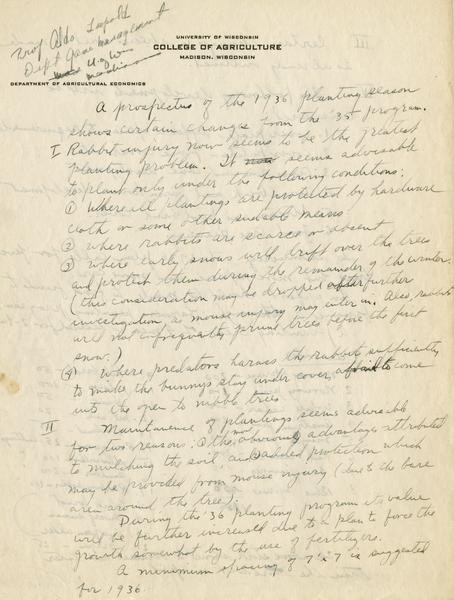 Prof Aldo Leopold
Dept Game Management
U of Wis
Madison
UNIVERSITY OF WISCONSIN
COLLEGE OF AGRICULTURE
MADISON, WISCONSIN
DEPARTMENT OF AGRICULTURAL ECONOMICS
A prospectus of the 1936 planting season
shows certain changes from the 35 program.
I Rabbit injury now seems to be the greatest
planting problem. It seems advisable
to plant only under the following conditions:
① Where all plantings are protected by hardware
cloth or some other suitable means
② where rabbits are scarce or absent
③ where early snows will drift over the trees
and protect them during the remainder of the winter.
(this consideration may be dropped after further
investigation as mouse injury may enter in. Also rabbits
will not infrequently prune trees before the first
snow.)
④ where predators harass the rabbit sufficiently
to make the bunnys stay under cover to come
into the open to nibble trees
II Maintainence of plantings seems advisable
for two reasons: ① the obvious advantages attributed
to mulching the soil, and ② added protection which
may be provided from mouse injury (due to the bare
area around the tree).
During the '36 planting program its value
will be further increased due to a plan to force the
growth somewhat by the use of fertilizers.
A minimum spacing of 7' x 7' is suggested
for 1936.